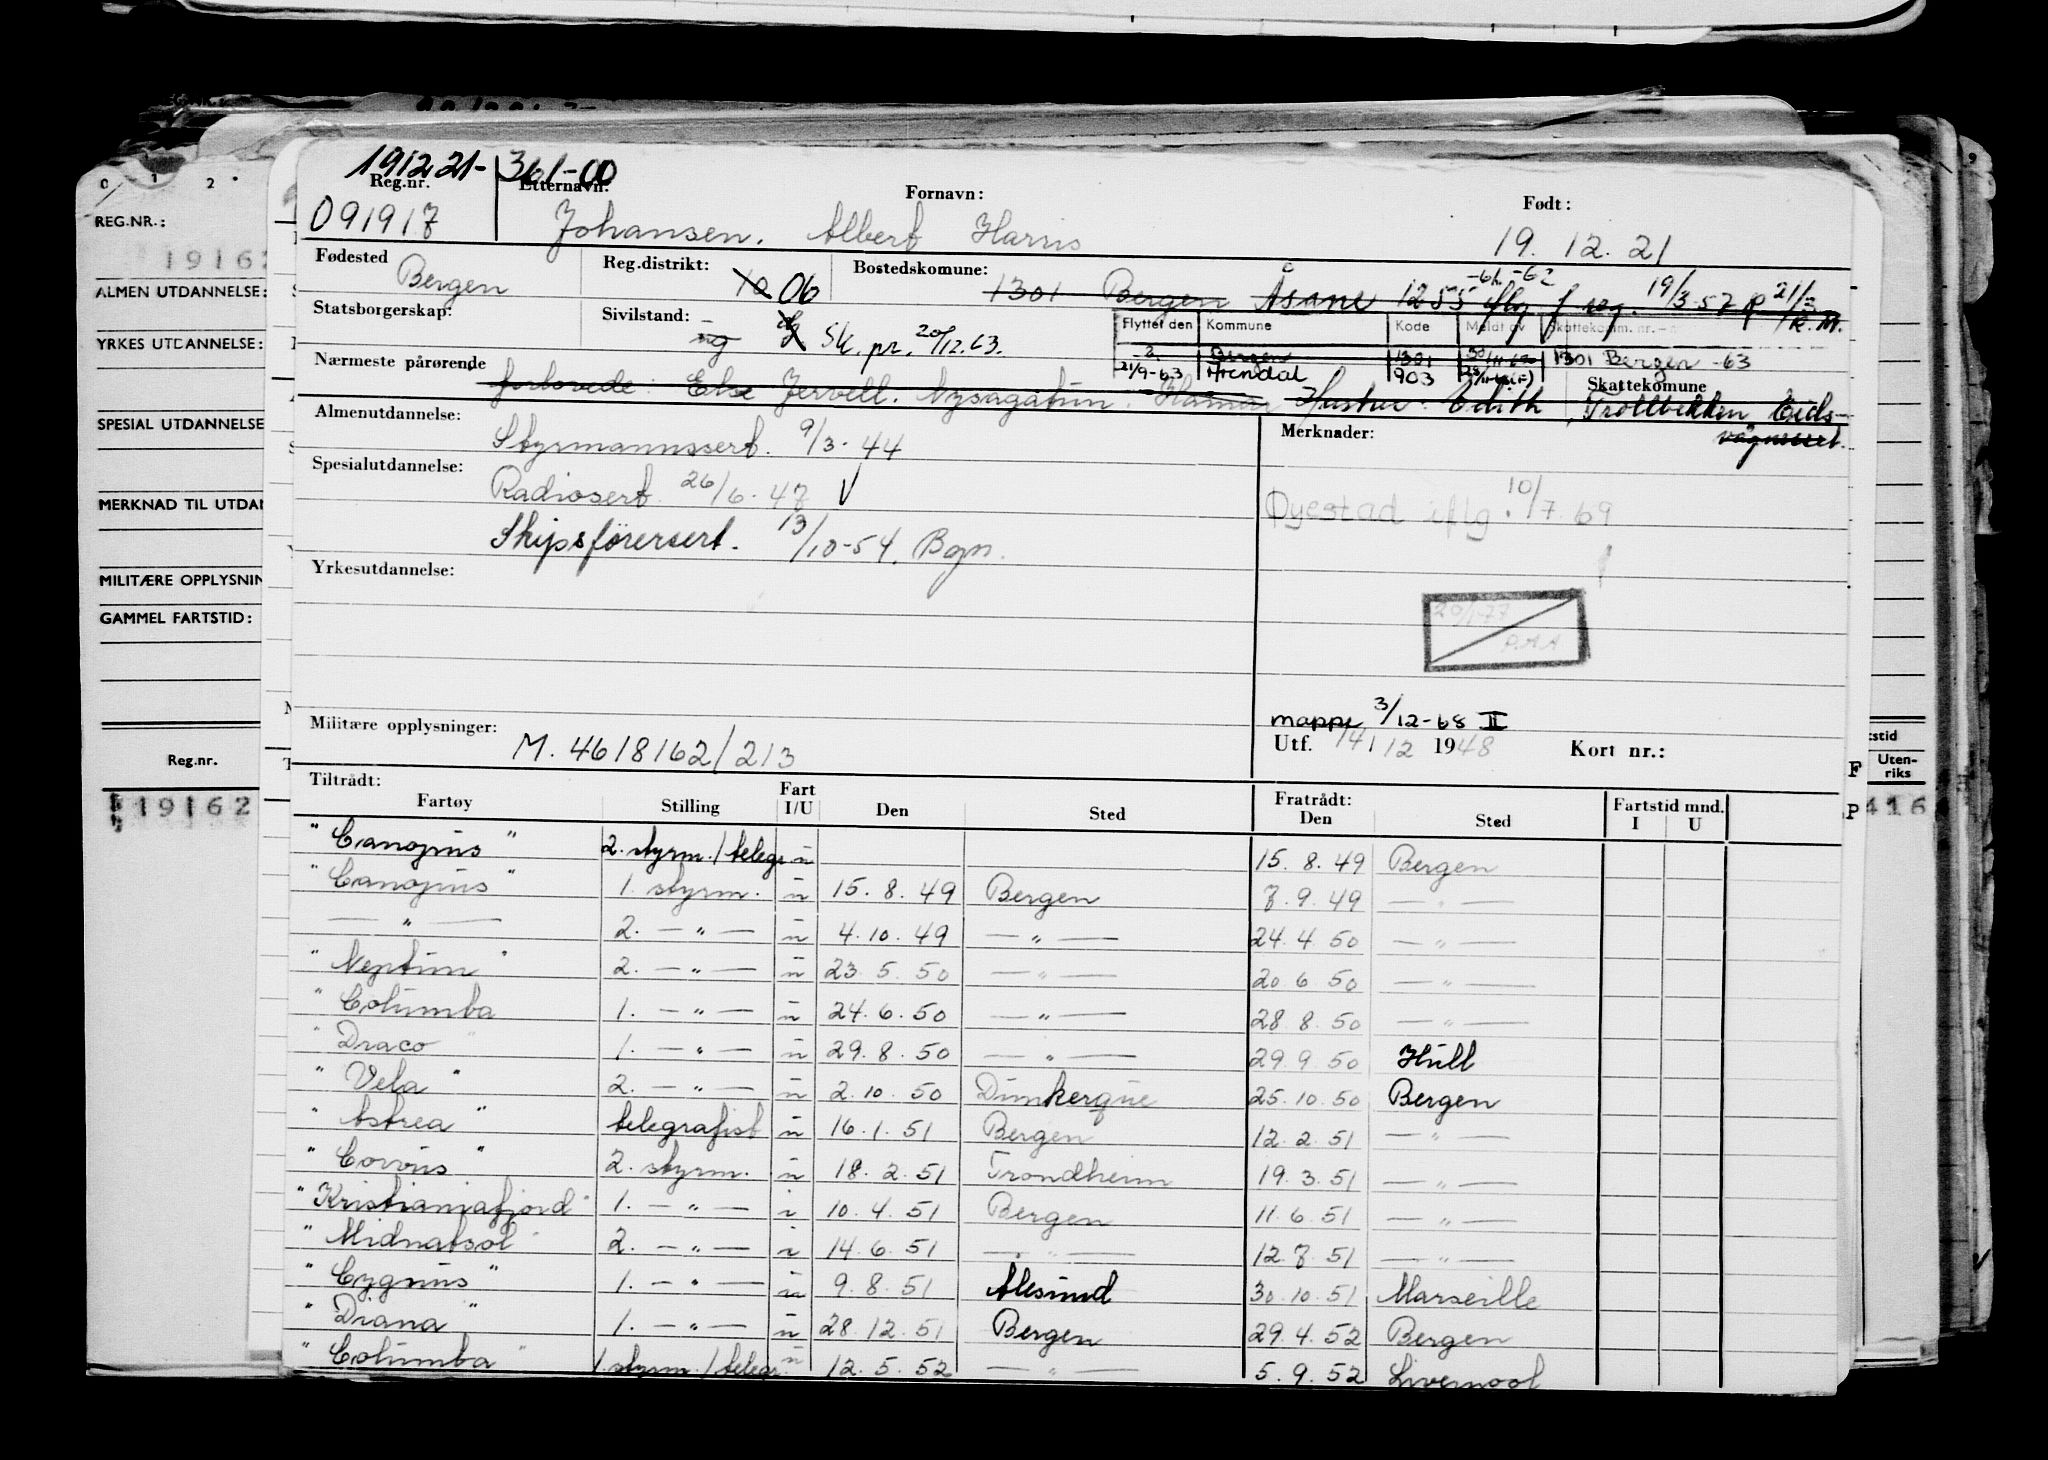 191221-361-00
Reg.nr. Etternavn: Fornavn: Født:
091917 Johansen. Albert Harris 19. 12. 21
Fødested Bergen Reg.distrikt: 10 06 Bostedskomune: 1301 Bergen Åsane 1255 -61-62 iflg f reg. 19/3-57 21/3 R.M.
Statsborgerskap: Sivilstand: ug g Sk. pr. 20/12.63.
Flyttet den Kommune Kode Meldt av Skattekomm. nr.
Bergen 1301 1301 Bergen -63
21/9-63 Arendal 903
Nærmeste pårørende forlovede: Else Jervell. Nysagatun. Hamar Hustru: Edith Trollbekken Eids-
Skattekomune
vågneset.
Almenutdannelse: Styrmannssert. 9/3-44 Merknader:
Spesialutdannelse: Radiosert. 26/6-47 V
Øyestad iflg. 10/7.69
Skipsførersert. 13/10-54. Bgn.
Yrkesutdannelse:
20/1-77
P.A.A
mappe 3/12-68 II
Militære opplysninger: M. 4618162/213 Utf. 14/12 1948 Kort nr.:
Tiltrådt: Fratrådt: Fartstid mnd.
Fartøy Stilling Fart I/U Den Sted Den Sted I U
"Canopus" 2. styrm./telegr u 15. 8. 49 Bergen
"Canopus" 1. styrm. u 15. 8. 49 Bergen 7. 9. 49 — " —
— " — 2. — " — u 4. 10. 49 — " — 24. 4. 50 — " —
"Neptun" 2. — " — u 23. 5. 50 — " — 20. 6. 50 — " —
"Columba 1. — " — u 24. 6. 50 — " — 28. 8. 50 — " —
"Draco" 1. — " — u 29. 8. 50 — " — 29. 9. 50 Hull
"Vela" 2. — " — u 2. 10. 50 Dunkerque 25. 10. 50 Bergen
"Astrea" telegrafist u 16. 1. 51 Bergen 12. 2. 51 — " —
"Corvus" 2. styrm. u 18. 2. 51 Trondheim 19. 3. 51 — " —
"Kristianiafjord" 1. — " — i 10. 4. 51 Bergen 11. 6. 51 — " —
"Midnatsol" 2. — " — i 14. 6. 51 — " — 12. 7. 51 — " —
"Cygnus" 1. — " — u 9. 8. 51 Ålesund 30. 10. 51 Marseille
"Diana" 1. — " — u 28. 12. 51 Bergen 29. 4. 52 Bergen
"Columba" 1. styrm./telegr. u 12. 5. 52 — " — 5. 9. 52 Liverpool
0 1 2
REG.NR.:
19162
ALMEN UTDANNELSE:
YRKES UTDANNELSE:
SPESIAL UTDANNELSE
MERKNAD TIL UTDAN
MILITÆRE OPPLYSNIN
GAMMEL FARTSTID:
Reg.nr.
19162
9
tstid
Uten-
riks
F
P
416